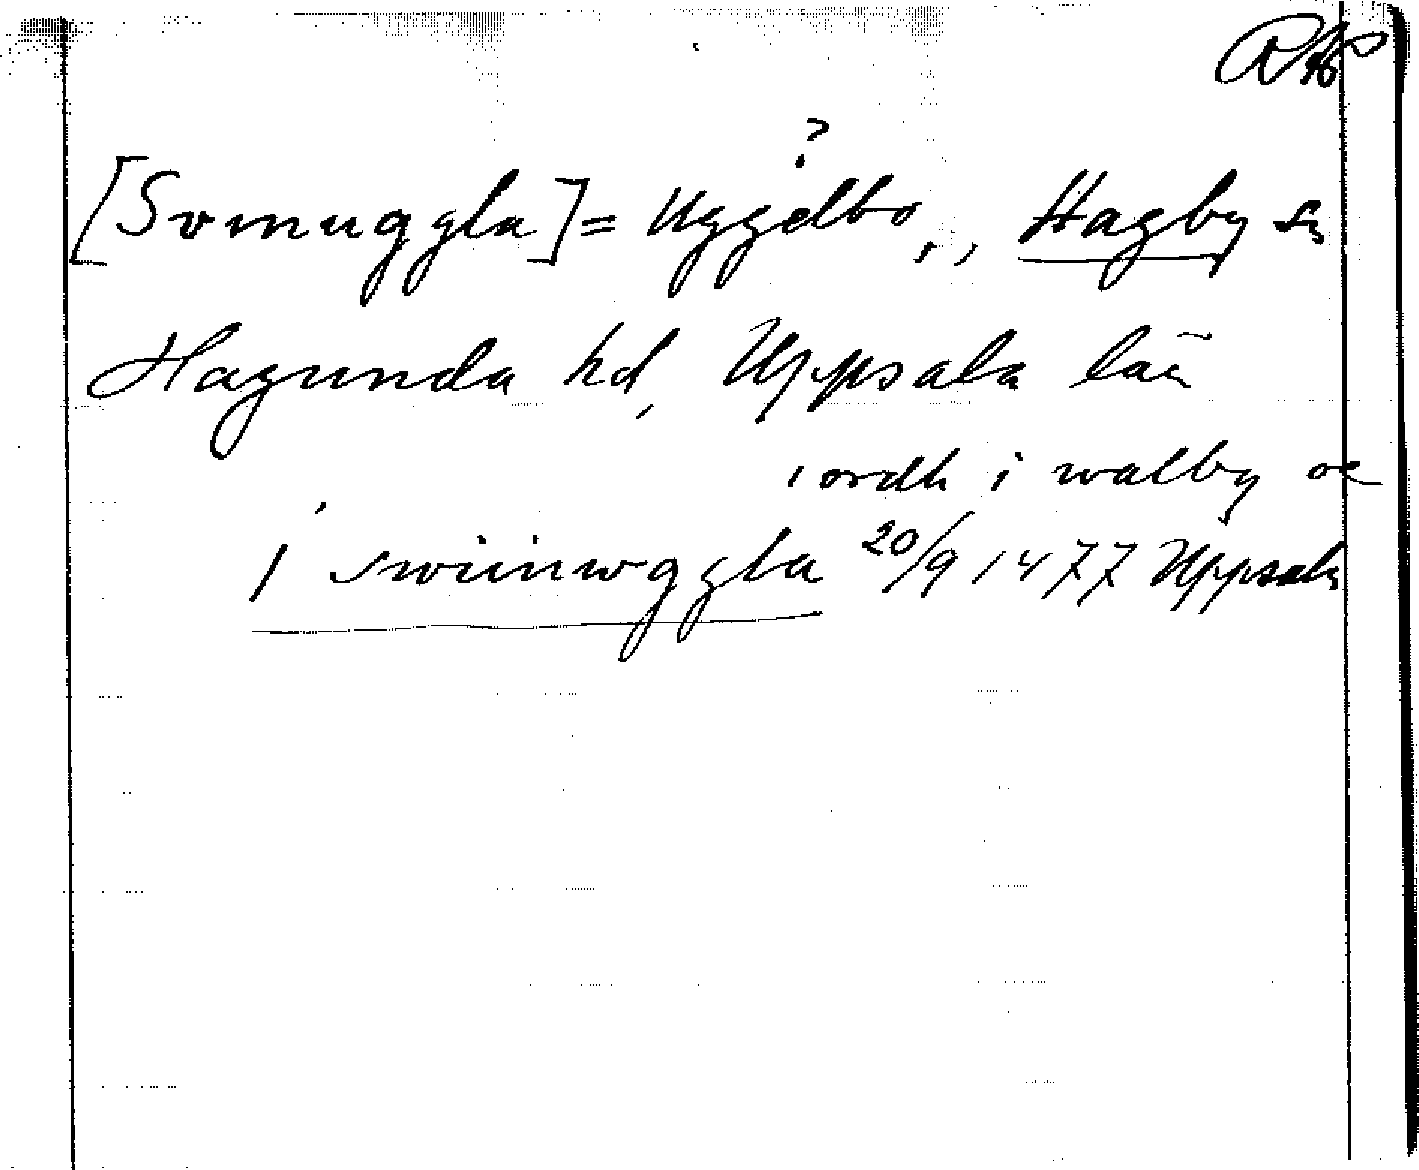 ?
[Svinuggla] = Uggelbo,, Hagby sn
Hagunda hd, Uppsala län
iordh i walby oc
i swiinwggla 20/9 1477 Uppsala